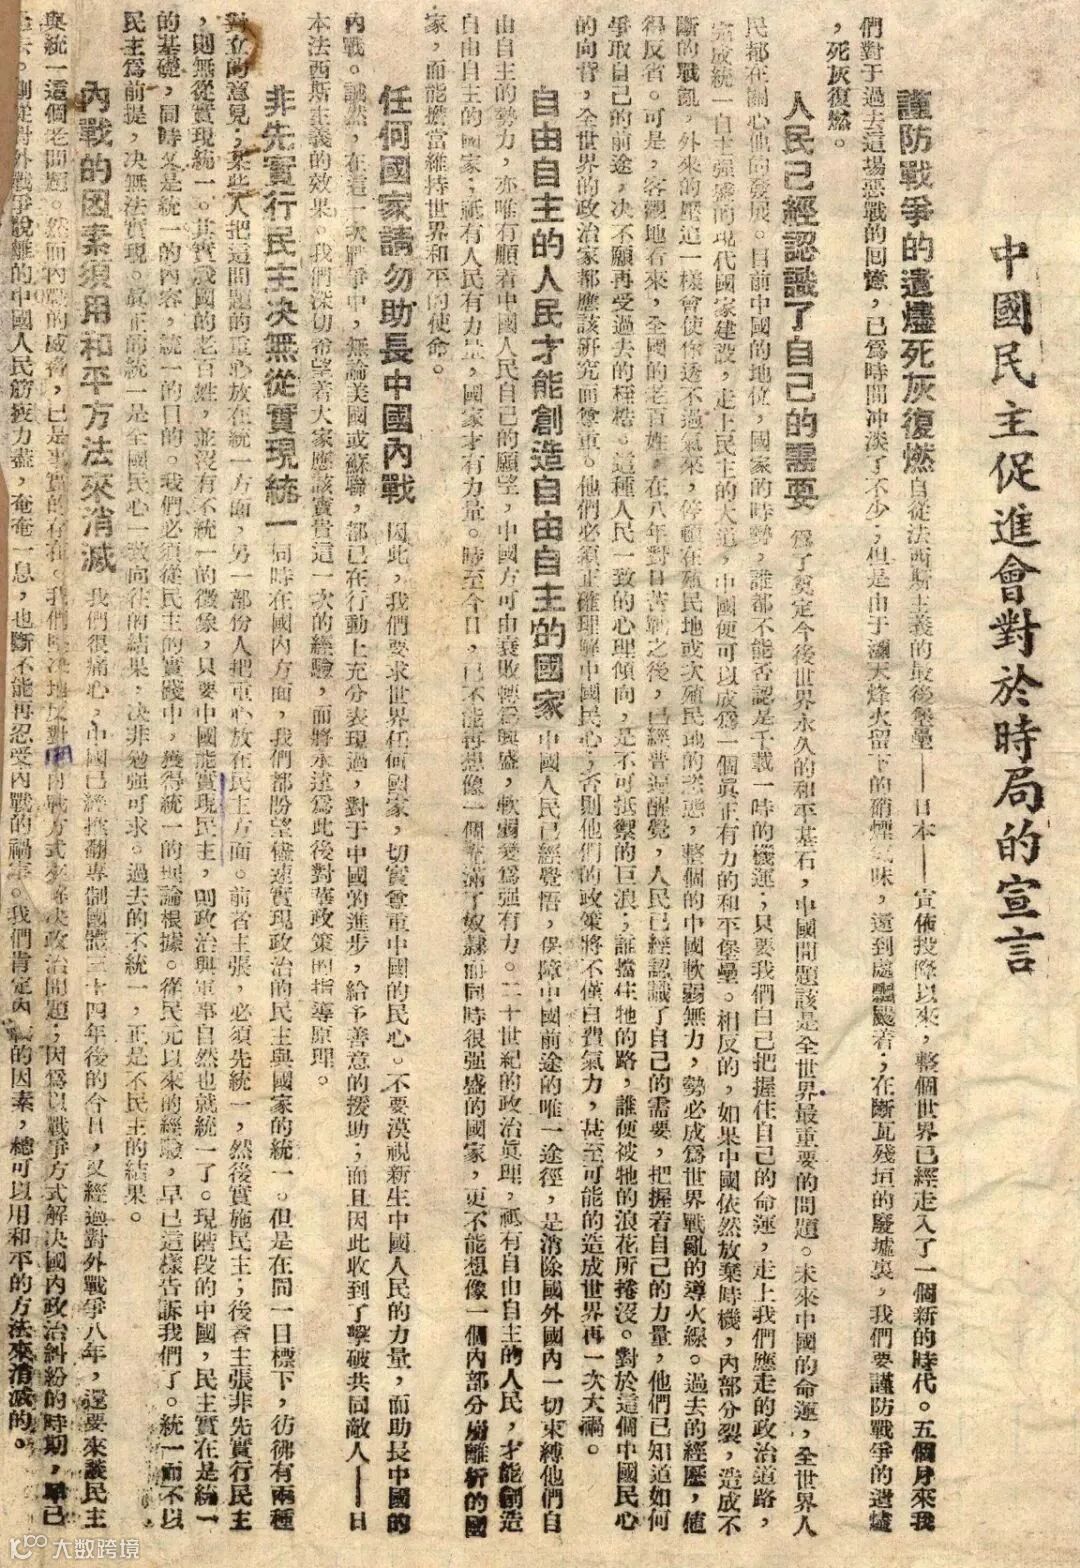 中國民主促進會對於時局的宣言
謹防戰爭的遺燼死灰復燃自從法西斯主義的最後堡壘——日本——宣佈投降以來，整個世界已經走入了一個新的時代。五個月來我
們對于過去這場惡戰的回憶，已爲時間沖淡了不少，但是由于瀰天烽火留下的硝煙氣味，還到處飄颺着；在斷瓦殘垣的廢墟裏，我們要謹防戰爭的遺燼
，死灰復燃。
人民已經認識了自己的需要 爲了奠定今後世界永久的和平基石，中國問題該是全世界最重要的問題。未來中國的命運，全世界人
民都在關心他的發展。目前中國的地位，國家的時勢，誰都不能否認是千載一時的機運；只要我們自己把握住自己的命運，走上我們應走的政治道路，
完成統一自主強盛的現代國家建設，走上民主的大道，中國便可以成爲一個眞正有力的和平堡壘。相反的，如果中國依然放棄時機，內部分裂，造成不
斷的戰亂，外來的壓迫一樣會使你透不過氣來，停頓在殖民地或次殖民地的姿態，整個的中國軟弱無力，勢必成爲世界戰亂的導火線。過去的經歷，値
得反省。可是，客觀地看來，全國的老百姓，在八年對日苦戰之後，已經普遍醒覺，人民已經認識了自己的需要，把握着自己的力量，他們已知道如何
爭取自己的前途，決不願再受過去的桎梏。這種人民一致的心理傾向，是不可抵禦的巨浪；誰擋住牠的路，誰便被牠的浪花所捲沒。對於這個中國民心
的向背，全世界的政治家都應該研究而尊重。他們必須正確理解中國民心，否則他們的政策將不僅白費氣力，甚至可能的造成世界再一次大禍。
自由自主的人民才能創造自由自主的國家 中國人民已經覺悟，保障中國前途的唯一途徑，是消除國外國內一切束縛他們自
由自主的勢力，亦唯有順着中國人民自己的願望，中國方可由衰敗轉爲興盛，軟弱變爲強有力。二十世紀的政治眞理，祇有自由自主的人民，才能創造
自由自主的國家；祇有人民有力量，國家才有力量。時至今日，已不能再想像一個充滿了奴隷而同時很強盛的國家，更不能想像一個內部分崩離析的國
家，而能擔當維持世界和平的使命。
任何國家請勿助長中國內戰 因此，我們要求世界任何國家，切實尊重中國的民心。不要漠視新生中國人民的力量，而助長中國的
內戰。誠然，在這一次戰爭中，無論美國或蘇聯，都已在行動上充分表現過，對于中國的進步，給予善意的援助；而且因此收到了擊破共同敵人——日
本法西斯主義的效果。我們深切希望着大家應該寶貴這一次的經驗，而將永遠爲此後對華政策的指導原理。
非先實行民主決無從實現統一 同時在國內方面，我們都盼望儘速實現政治的民主與國家的統一。但是在同一目標下，彷彿有兩種
對立的意見；某些人把這問題的重心放在統一方面，另一部份人把重心放在民主方面。前者主張，必須先統一，然後實施民主；後者主張非先實行民主
，則無從實現統一。其實我國的老百姓，並沒有不統一的徵象，只要中國能實現民主，則政治與軍事自然也就統一了。現階段的中國，民主實在是統一
的基礎，同時又是統一的內容，統一的目的。我們必須從民主的實踐中，獲得統一的理論根據。從民元以來的經驗，早已這樣告訴我們了。統一而不以
民主爲前提，決無法實現。眞正的統一是全國民心一致向往的結果，決非勉強可求。過去的不統一，正是不民主的結果。
內戰的因素須用和平方法來消滅 我們很痛心，中國已經推翻專制國體三十四年後的今日，又經過對外戰爭八年，還要來談民主
與統一這個老問題。然而內戰的威脅，已是事實的存在。我們堅決地反對用內戰方式來解決政治問題；因爲以戰爭方式解決國內政治糾紛的時期，早已
過去。剛從對外戰爭脫離的中國人民筋疲力盡，奄奄一息，也斷不能再忍受內戰的禍害。我們肯定內戰的因素，總可以用和平的方法來消滅的。
大数跨境